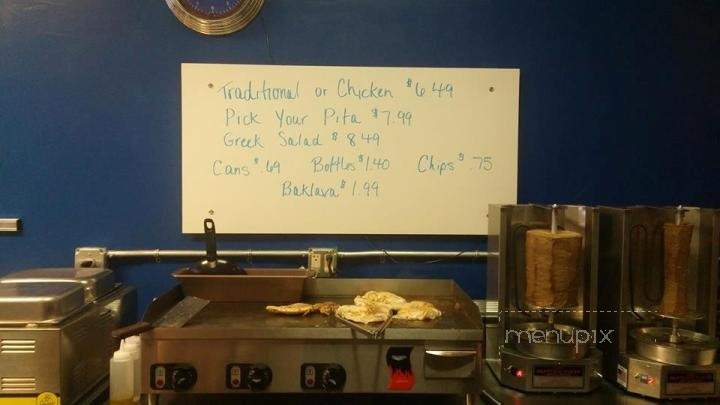 Traditional or Chicken $6.49
Pick Your Pita $7.99
Greek Salad $8.49
Cans $.69 Bottles $1.40 Chips $.75
Baklava $1.99
menupix